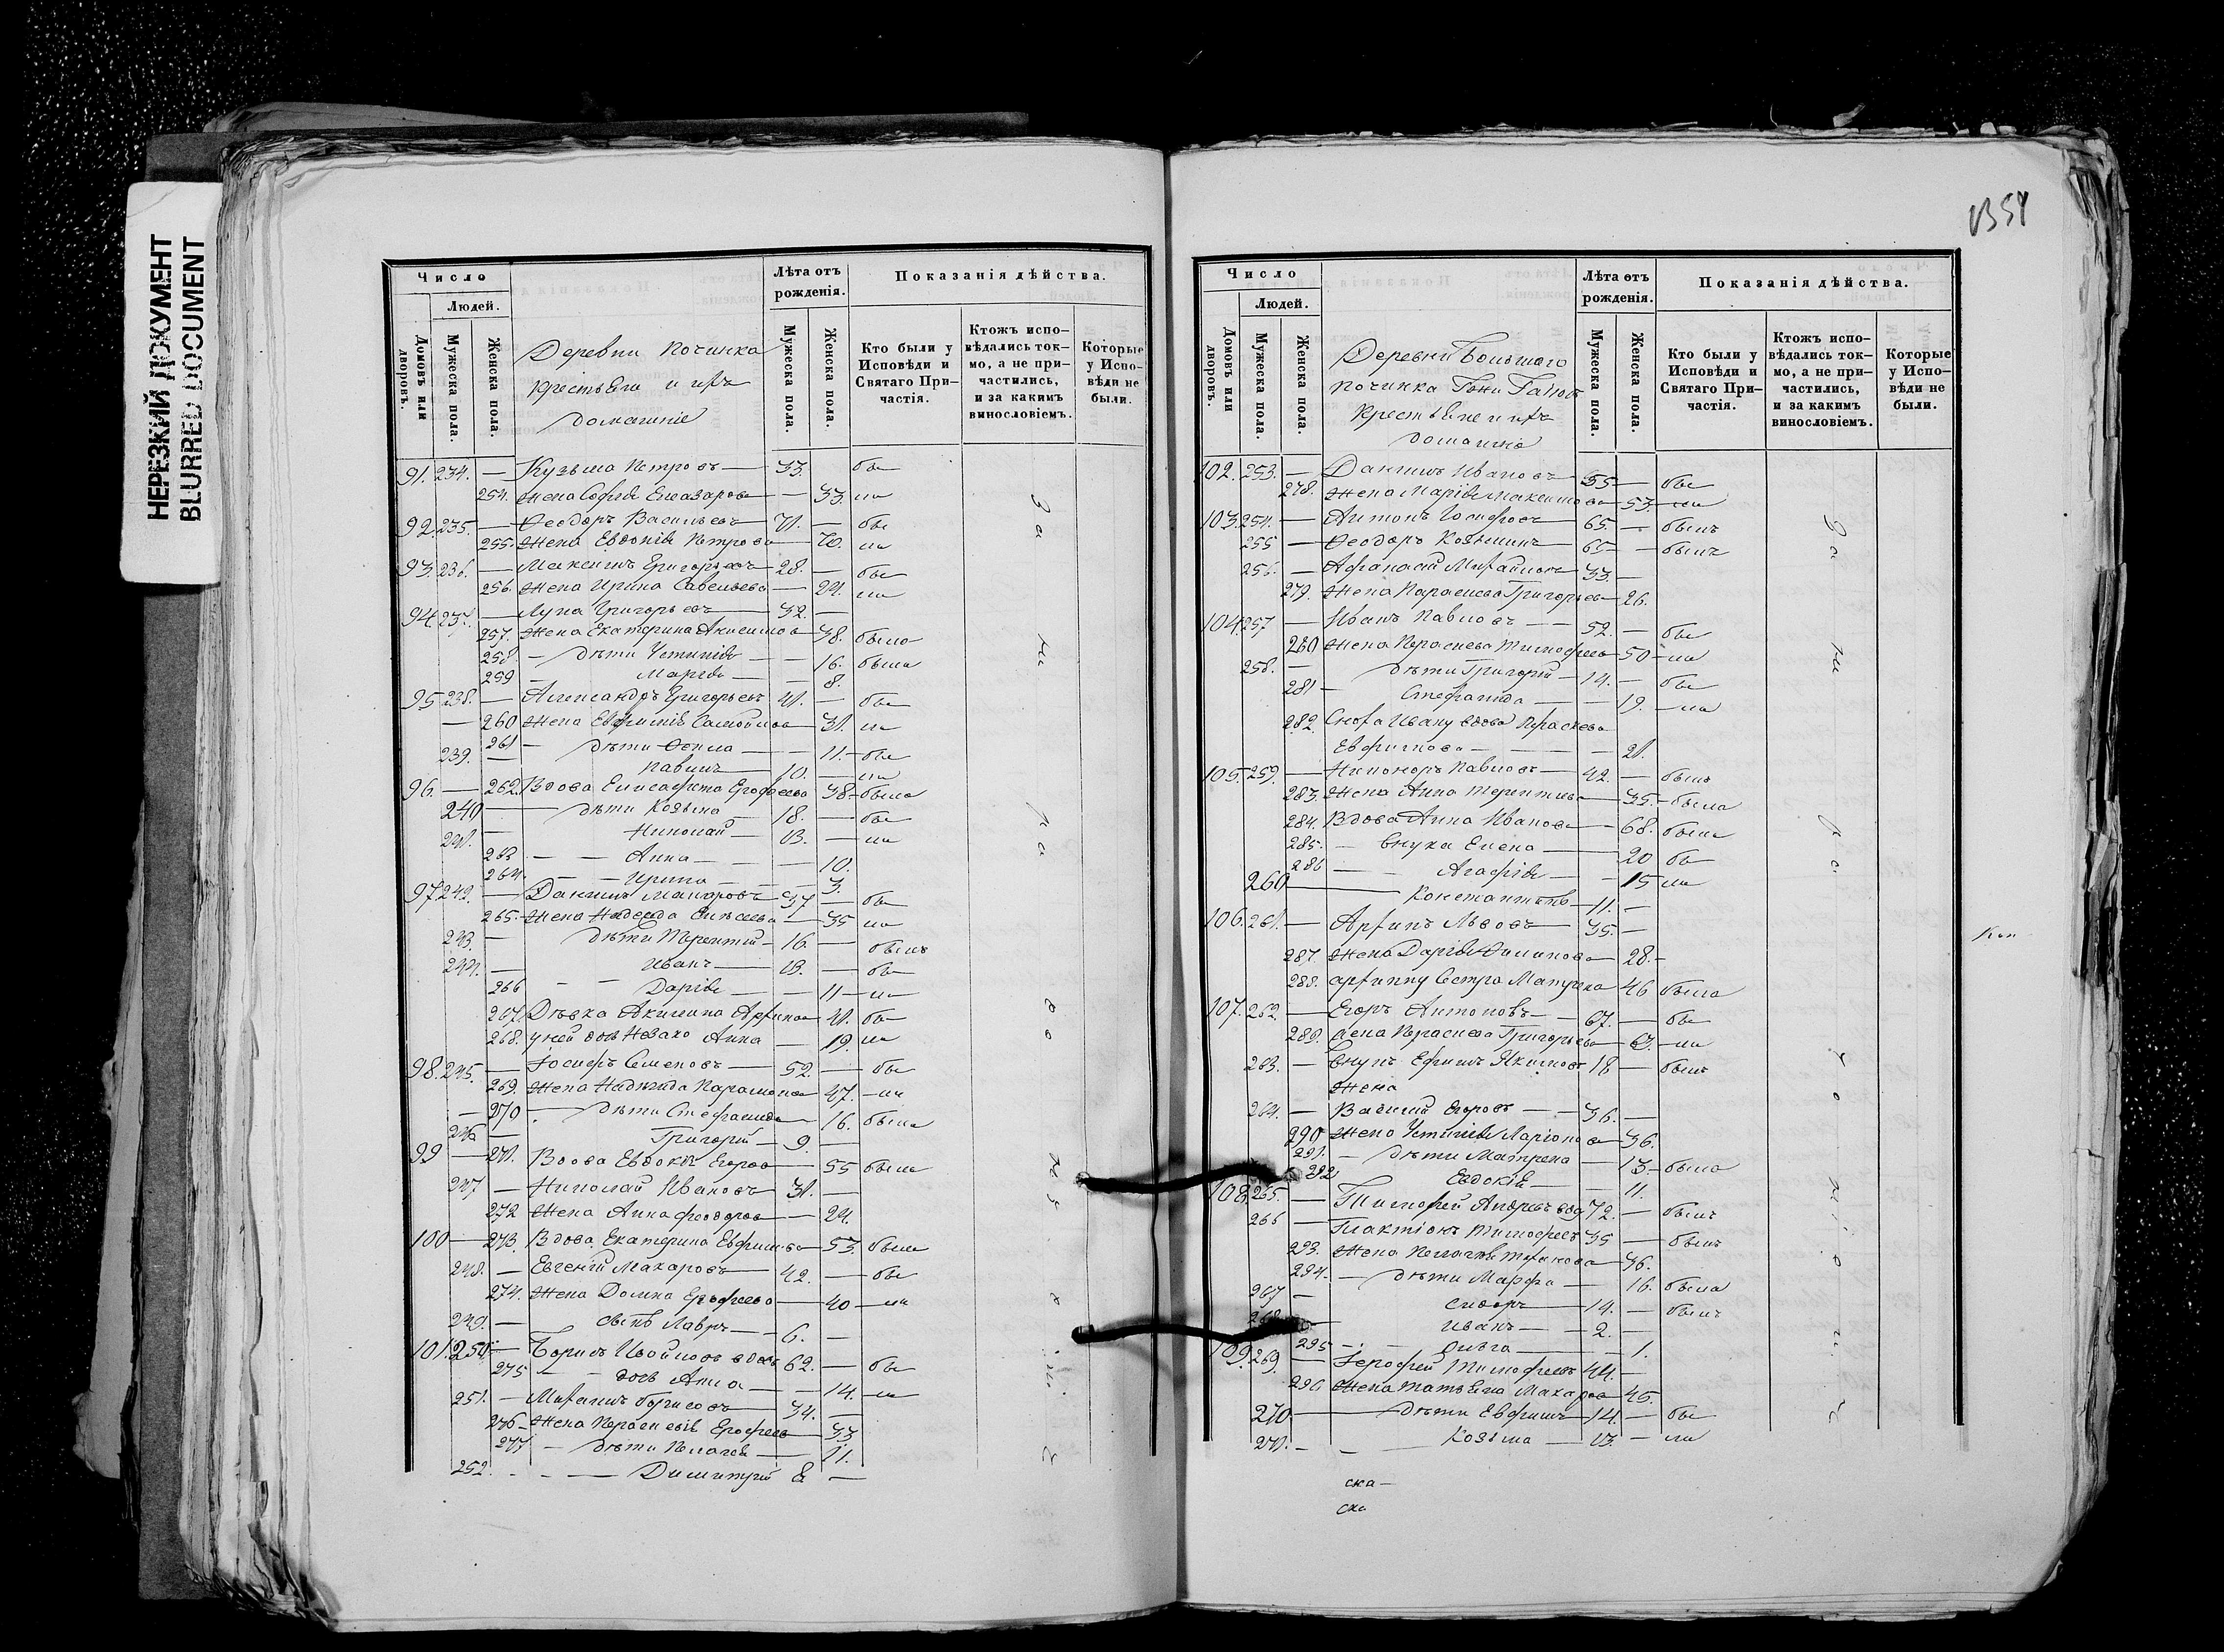 НЕРЕЗКИЙ ДОКУМЕНТ
BLURRED DOCUMENT
Число
Людей.
Домовъ или дворовъ.
Мужеска пола.
Женска пола.
Деревни Починка
крестьяне и ихъ
домашніе
Лѣта отъ рожденія.
Мужеска пола.
Женска пола.
Показанія дѣйства.
Кто были у Исповѣди и Святаго Причастія.
Ктожъ исповѣдались токмо, а не причастились, и за какимъ винословіемъ.
Которые у Исповѣди не были.
91. 234. — Кузьма Петровъ — 33. бы
254. жена Софія Елеазарова — 33. ли
92. 235. — Ѳеодоръ Васильевъ 71. — бы
255. жена Евдокія Петрова — 70. ли
93. 236. — Максимъ Григорьевъ 28. — бы
256. жена Ирина Савельева — 24. ли
94. 237. — Лупа Григорьевъ — 32. —
257. жена Екатерина Анисимова 38. была
258. — дѣти Устинія — — 16. была
259 — Марія — — 8.
95 238. — Александръ Григорьевъ 41. — бы
— 260 жена Евфимія Самойлова — 31. ли
261 — дѣти Ѳекла — — 11. — бы
239. — Павелъ — 10. — ли
96. — 262. Вдова Елисавета Ерофеева 38 — была
240 — дѣти Козьма — 18. — бы
241. — Николай — 13. — ли
263 — — Анна — — 10.
264. — — Ирина — — 3.
97 242. — Даніилъ Макаровъ 37 — бы
265. жена Надежда — 35 ли
243. — дѣти Терентій — 16. — былъ
244. — Иванъ — 13. — бы
266 — — Дарія — — 11 — ли
267. Дѣвка Акилина 41. бы
268. у ней Анна — 19. ли
98. 245. — Іосифъ Семеновъ — 52. — бы
269. жена Надежда Парамонова 47. — ли
— 270 — дѣти Стефанида 16. была
246 — Григорій — 9. —
99 — 271. Вдова Евдокія Егорова — 55 была
247 — Николай Ивановъ — 31. —
272 жена Анна Феодорова — 24.
100 — 273. Вдова Екатерина Евфимова — 53. была
248. — Евгеній Макаровъ — 42. — бы
274. жена Домна Ерофеева — 40 — ли
249. — сынъ Лавръ — 6. —
101. 250 — Борисъ вдовъ 62. — бы
275 — — дочь Анна — — 14. — ли
251. — Михаилъ Борисовъ — 34. —
276 — жена Ерофеева — 33
277 — дѣти Пелагея — 11.
252. — — Димитрій 8 —
1354
Число
Людей.
Домовъ или дворовъ.
Мужеска пола.
Женска пола.
Деревни Большого
починка
Крестьяне и ихъ
домашніе
Лѣта отъ рожденія.
Мужеска пола.
Женска пола.
Показанія дѣйства.
Кто были у Исповѣди и Святаго Причастія.
Ктожъ исповѣдались токмо, а не причастились, и за какимъ винословіемъ.
Которые у Исповѣди не были.
102. 253. — Даніилъ Ивановъ — 55 — бы
278. жена Марія Максимова — 53. — ли
103. 254. — Антонъ Іосифовъ — 65. — былъ
255 — Ѳеодоръ Козьминъ — 65 — былъ
256. — Афанасій Михайловъ 33. —
279. жена Параскева Григорьева 26.
104. 257 — Иванъ Павловъ — — 52. — бы
280 жена Параскева Тимофеева 50 — ли
258. — дѣти Григорій — 14. — бы
281 — Стефанида — — 19. — ли
282. Сноха Ивану вдова Параскева
Евфимова — — — 21.
105. 259. — Никаноръ Павловъ — 42. — былъ
283. жена Анна Терентьева — 35. — была
284. Вдова Анна Иванова — 68. была
285. — внука Елена — 20 бы
286 — — Агафія — — 15 ли
260 — Константинъ — 11. —
106. 261. — Архипъ Львовъ — 35. —
287. жена Дарія Филипова — 28. —
288. архиппу сестра Матрена 46 была
107. 262. — Егоръ Антоновъ — 67. — бы
289. жена Параскева Григорьева — 67. — ли
263. — внукъ Ефимъ Якимовъ 18 — былъ
жена
264. — Василій Егоровъ — 36. —
290 жена Устинія Ларіонова — 36.
291. — дѣти Матрена — 13. — была
292 Евдокія — 11.
108. 265. — Тимофей Андреевъ вдов 72. — былъ
266 — Галактіонъ Тимофеевъ 35 — былъ
293. жена Пелагія — 36.
294. — дѣти Марфа — 16. была
267 — Сидоръ — 14. — былъ
268 — Иванъ — 2. —
295 — Ольга — 1.
109. 269. — Ерофей Тимофеевъ 44. —
296 жена Татьяна Макарова 45.
270 — дѣти Евфимъ — 14. — бы
271. — — Козьма — 13. — ли
ска —
ска